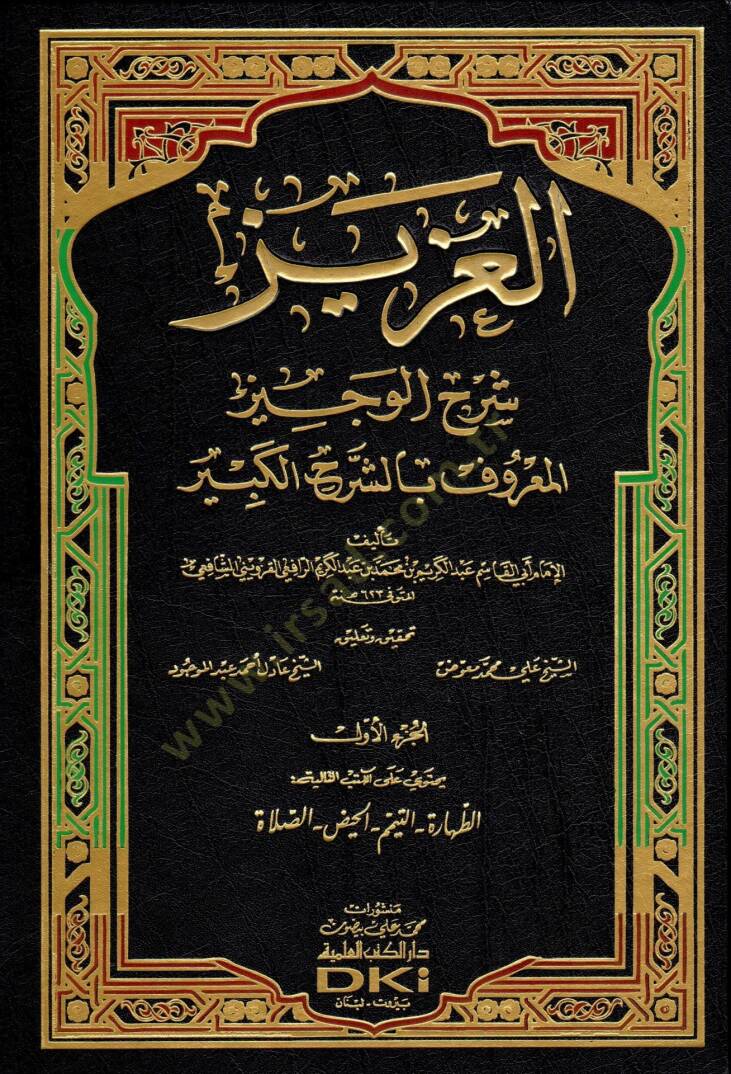 العزيز
شرح الوجيز
المعروف بالشرح الكبير
تأليف
الإمام أبي القاسم عبد الكريم بن محمد بن عبد الكريم الرافعي القزويني الشافعي
المتوفى ٦٢٣ سنة
تحقيق وتعليق
الشيخ علي محمد معوض الشيخ عادل أحمد عبد الموجود
الجزء الأول
يحتوي على الكتب التالية:
الطهارة - التيمم - الحيض - الصلاة
منشورات
محمد علي بيضون
دار الكتب العلمية
DKi
بيروت - لبنان
www.irsad.com.tr